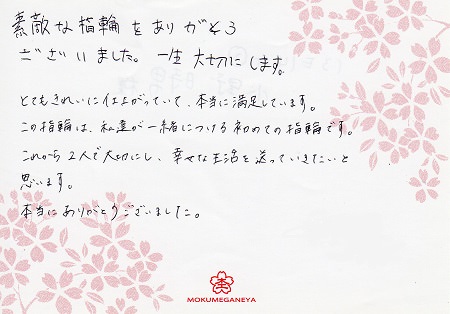 素敵な指輪をありがとう
ございました。一生大切にします。
とてもきれいに仕上がっていて、本当に満足しています。
この指輪は、私達が一緒につける初めての指輪です。
これから2人で大切にし、幸せな生活を送っていきたいと
思います。
本当にありがとうございました。
MOKUMEGANEYA